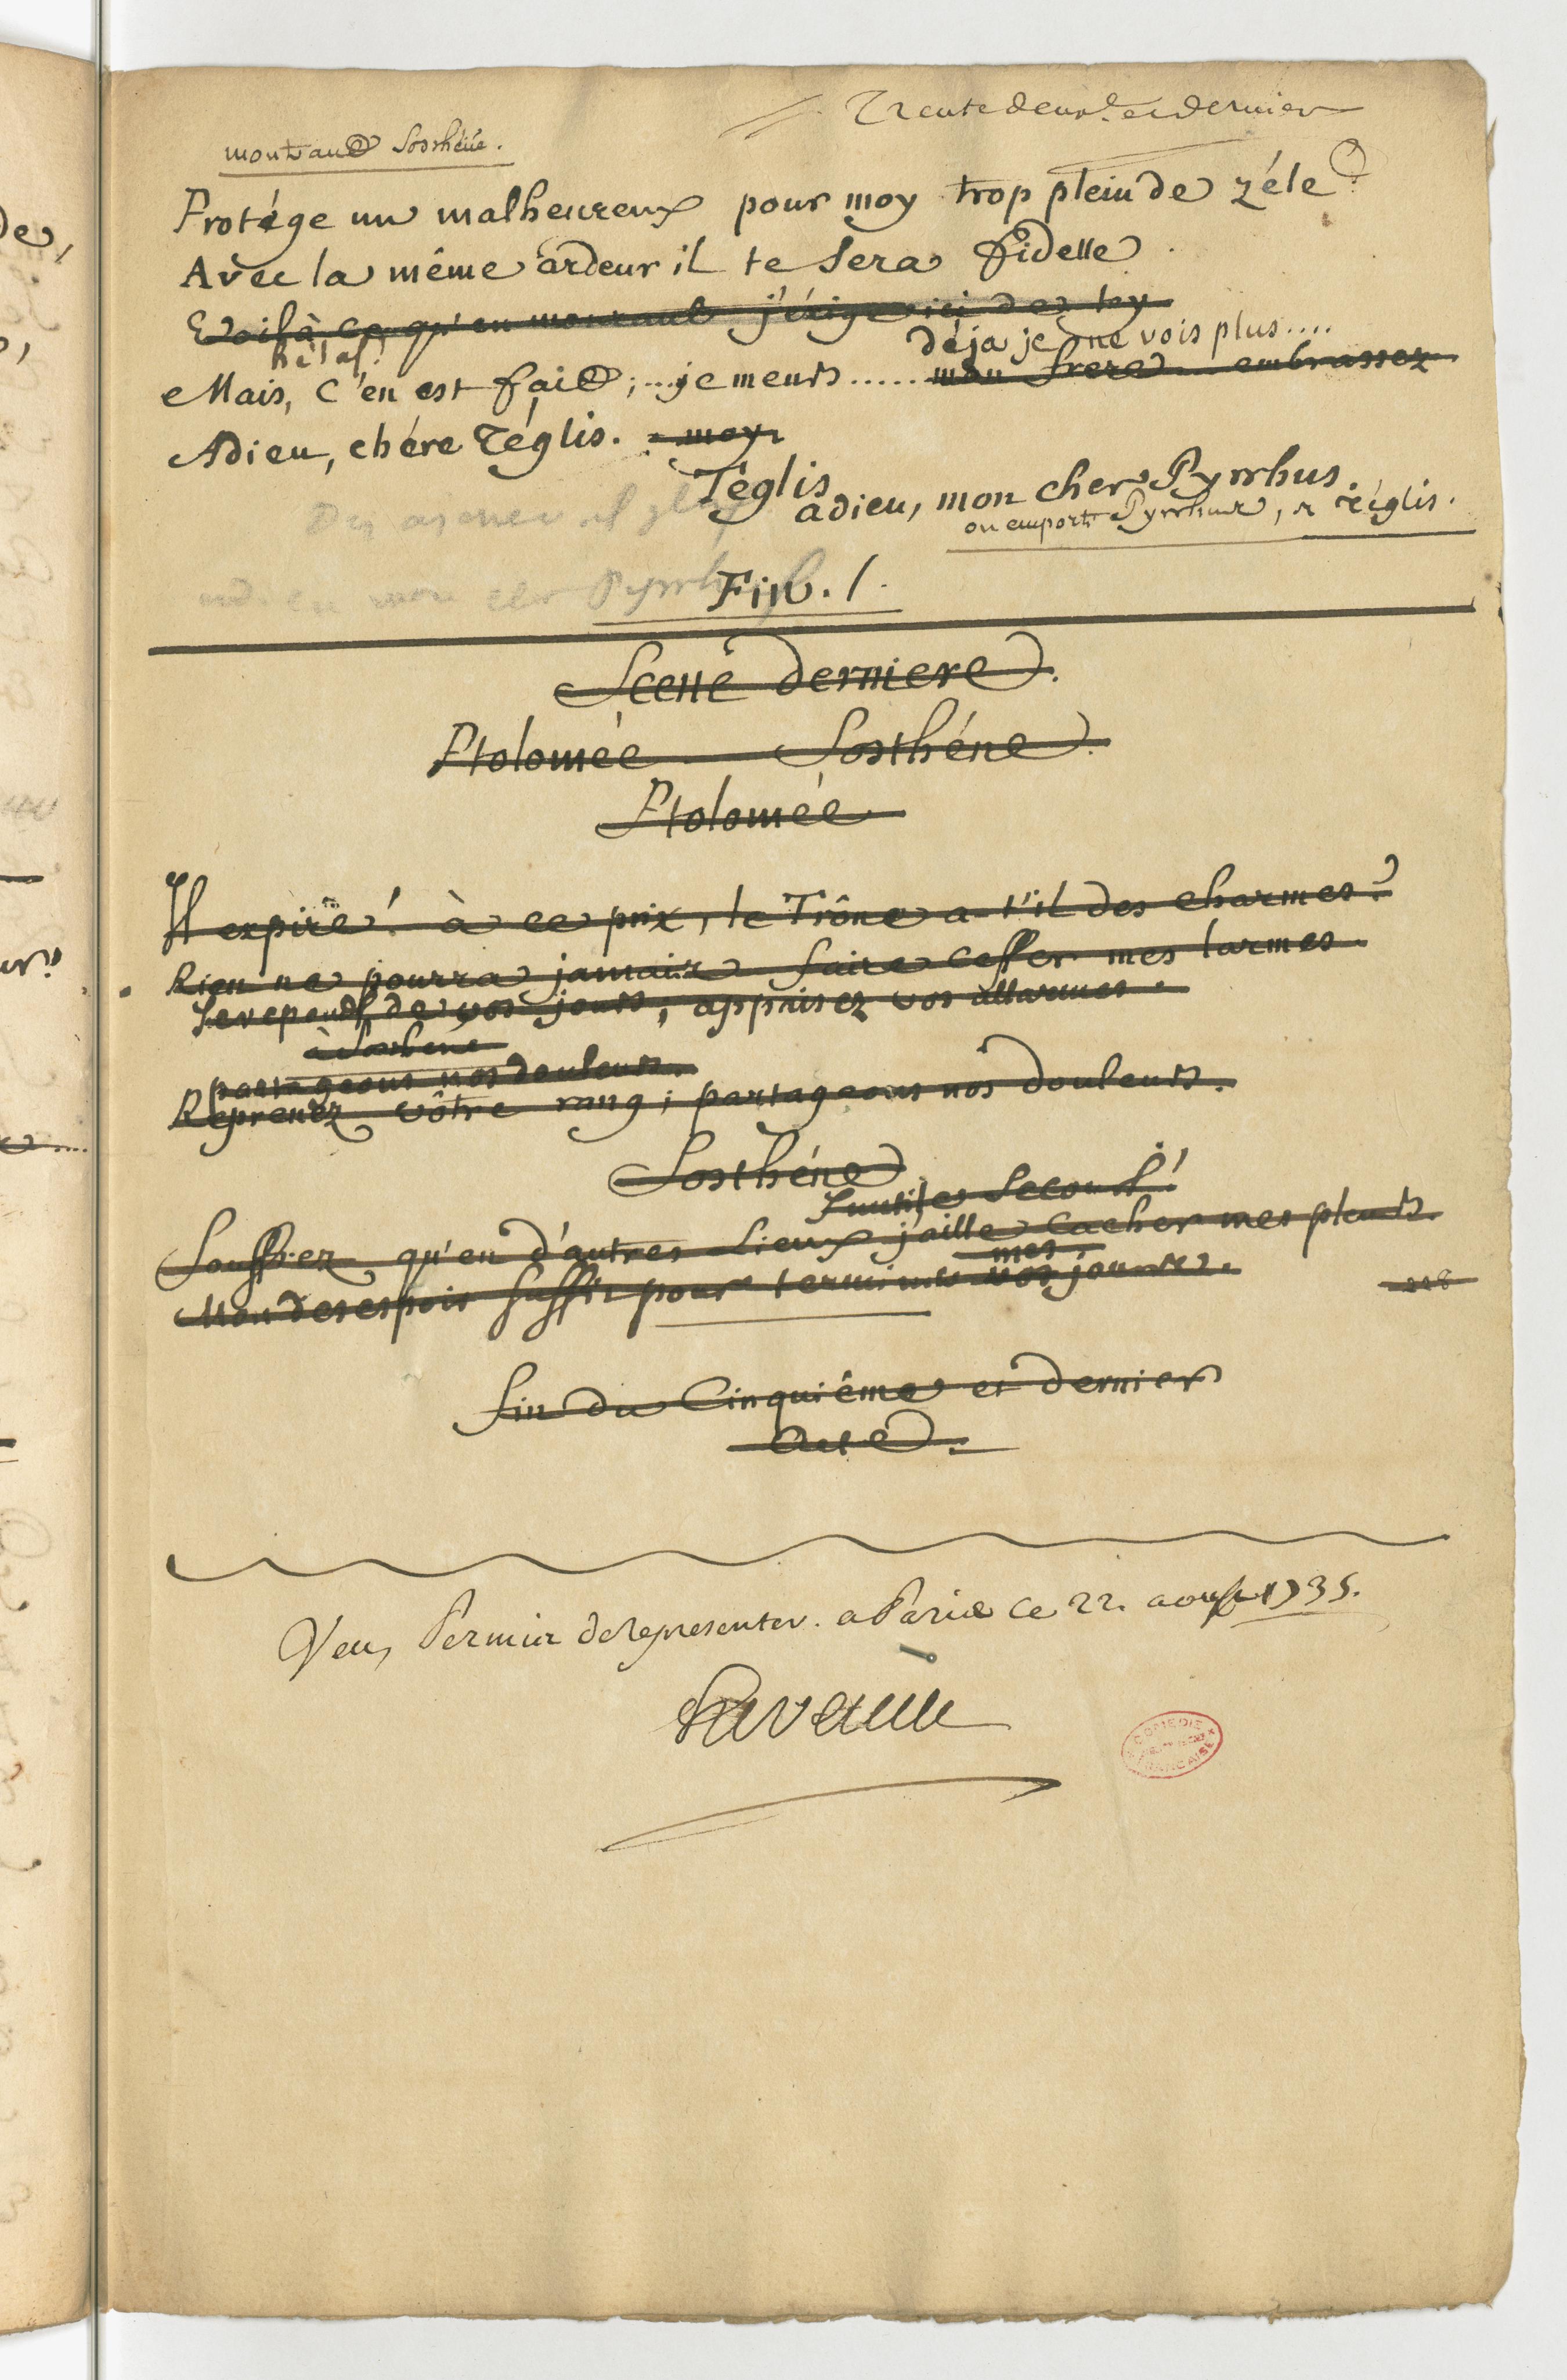 Trente deux.e et dernier
montrant Sosthéne.
Protége un malheureux pour moy trop plein de zéle
Avec la même ardeur il te sera fidelle.
Voilà ce qu'en mourant j'éxige ici de toy
hélas! déja je ne vois plus....
Mais, c'en est fait;...je meurs..... mon frere embrassez
Adieu, chére Téglis. - moy.
Téglis
adieu, mon cher Pyrrhus.
on emporte Pyrrhus, et Téglis.
adieu mon cher Pyrrhus
Fin./.
Scene derniere.
Ptolomée Sosthéne.
Ptolomée
Il expire! à ce prix, le Trône a-t'il des charmes?
Rien ne pourra jamais faire cesser mes larmes.
Je repends de vos jours; appaisez vos allarmes.
à Sosthene
partageons nos douleurs.
Reprenez vôtre rang; partageons nos douleurs.
Sosthéne
Inutiles secours!
Souffrez qu'en d'autres lieux j'aille cacher mes pleurs.
mes
Mon desespoir suffit pour terminer vos jours.
228
fin du Cinquiéme et dernier
Acte.
Veu, Permis de representer. a Paris ce 22. aoust 1735.
COMEDIE
FRANCAISE